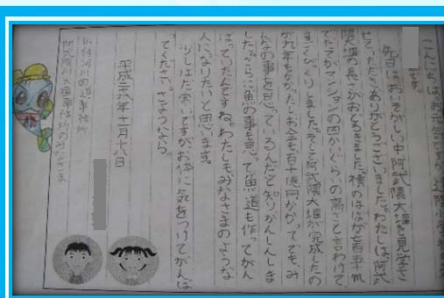 こんにちは
です。
先日はおいそがしい中阿武隈大堰を見学さ
せていただきありがとうございました。わたしは阿武
隈大堰の長さがおどろきました。横のはばが
てたてがマンションの四かいぐらいの高さと言われて
すごくびっくりしました。あと阿武隈大堰が完成したの
が九年もかかったしお金も百十億円かかってでもみ
んなの事を思っているんだと知りかんしんしま
した。さらに魚の事を思って魚道も作ってがん
ばっていたんですね。わたしもみなさまのような
人になりたいと思います。
少しはだ寒いですがお体に気をつけてがんば
ってください。さようなら
平成二六年十一月十八日
河川国道事務所
阿武隈大堰事務所のみなさま